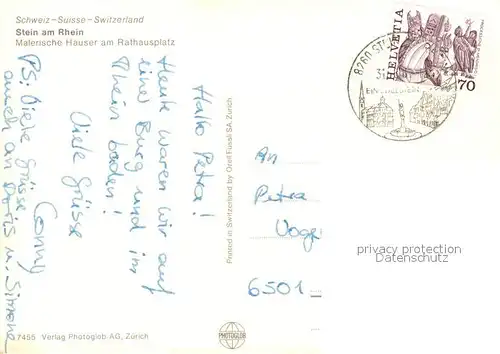 Schweiz-Suisse-Switzerland
Stein am Rhein
Malerische Häuser am Rathausplatz
Hallo Petra!
Heute waren wir auf
einer Burg und im
Rhein baden!
Viele Grüsse
Conny
PS: Viele Grüsse
auch an Doris u. Simone
7455 Verlag Photoglob AG, Zürich
Printed in Switzerland by Orell Füssli SA Zürich
PHOTOGLOB
An
Petra
Voge
6501
HELVETIA
70
8260 ST
privacy protection
Datenschutz